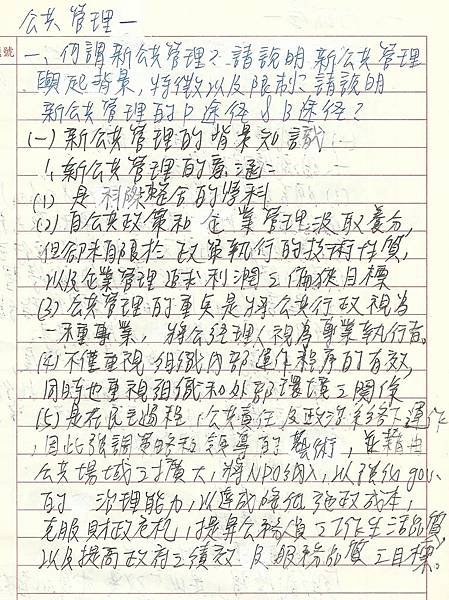 公共管理一
一、何謂新公共管理？請說明新公共管理
興起背景、特徵以及限制？請說明
新公共管理的P途徑&B途徑？
(一)新公共管理的背景知識：
1.新公共管理的意涵：
(1)是科際整合的學科
(2)自公共政策和企業管理汲取養分，
但卻未自限於政策執行的技術性質，
以及企業管理追求利潤之偏狹目標
(3)公共管理的重點是將公共行政視為
一種專業，將公經理人視為專業執行者。
(4)不僅重視組織內部運作程序的有效，
同時也重視組織和外部環境之關係
(5)是在民主過程，公共責任及政治系絡下運作
，因此強調策略和領導的藝術，並藉由
公共場域之擴大，將NPO納入，以強化gov.
的治理能力，以達成降低施政成本，
克服財政危机，提昇公務員工作生活品質，
以及提高政府之績效及服務品質之目標。
號